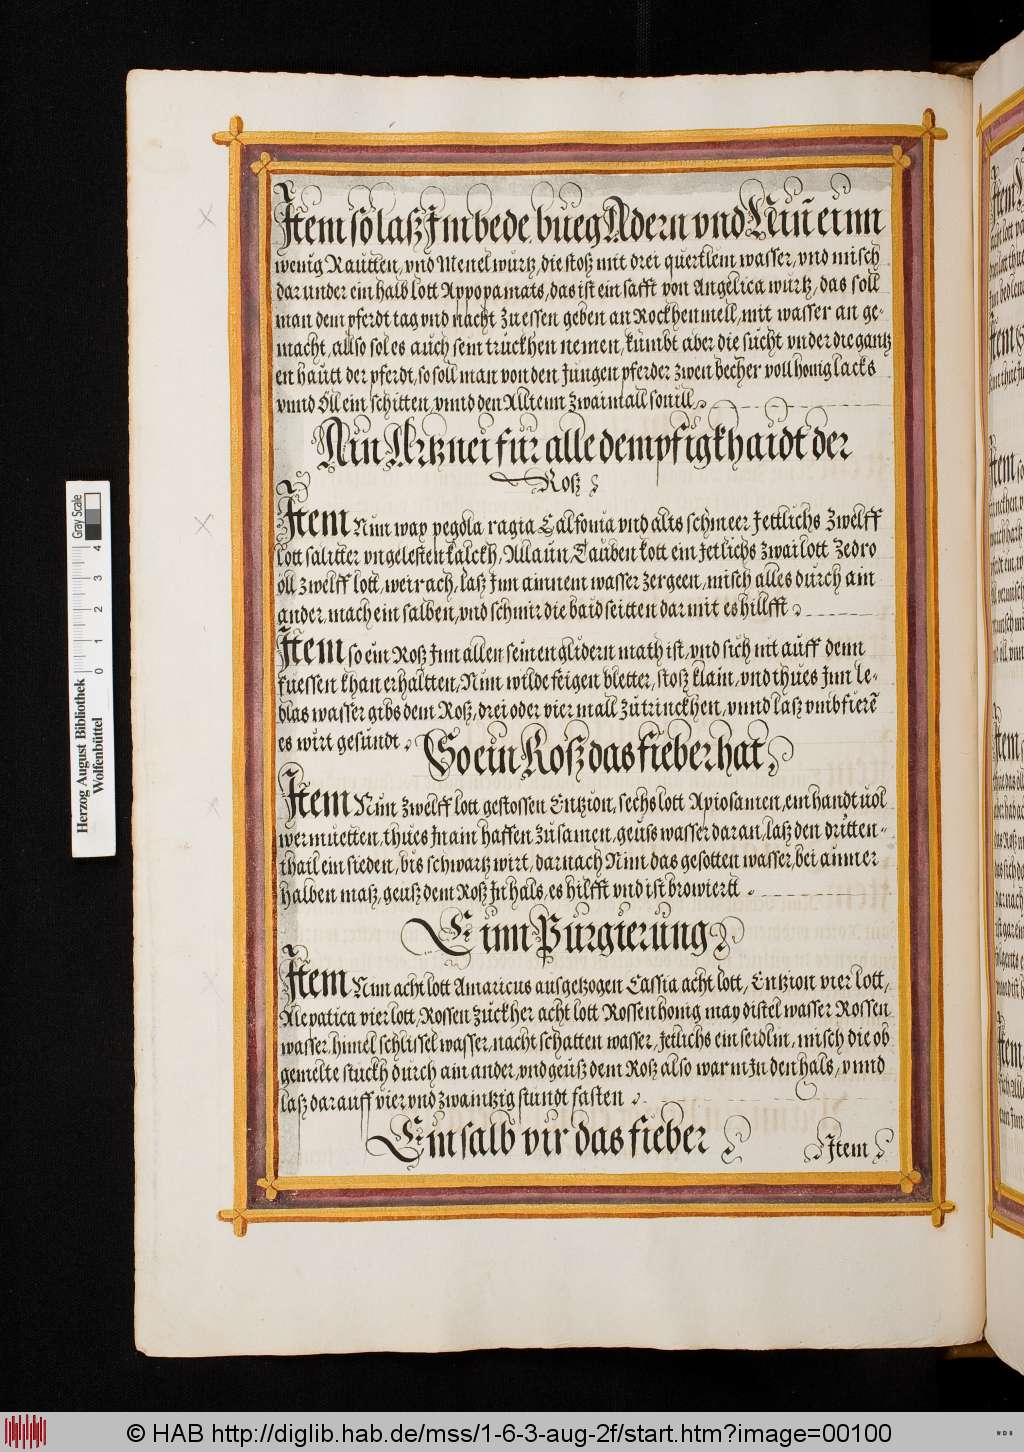 Item so laß Im bede bueg Adern vnd Nim einn
wenig Rautten, vnd Menelwurtz, die stoß mit drei quertlein wasser, vnd misch
darunder ein halb lott Appopamats, das ist ein safft von Angelica wurtz, das soll
man dem pferdt tag vnd nacht zu essen geben an Rockhenmell, mit wasser an ge-
macht, allso sol es auch sein truckhen nemen, kumbt aber die sucht vnder die gantz
en hautt der pferdt, so soll man von den Jungen pferder zwen becher voll honig lacks
vnnd Öll ein schitten, vnnd den Alltenn zwaimall souill
Ain Artznei für alle dempfigkhaidt der
Roß
Item Nim wax pegola ragia Calfonia vnd alts schmeer Jettlichs zwelff
lott saliter vngelesten kalckh, Allaun, Tauben kott ein Jetlichs zwai lott Zedro
öll zwelff lott, weirach, laß Inn ainnem wasser zergeen, misch alles durch ain
ander, mach ein salben, vnd schmir die baid seitten darmit es hillfft
Item so ein Roß Inn allen seinen glidern math ist, vnd sich nit auff denn
fuessen khan erhaltten, Nim wilde feigen bletter, stoß klain, vnd thues Inn le-
blas wasser gibs dem Roß, drei oder vier mall zu trinckhen, vnnd laß vmbfierē
es wirt gesundt
So ein Roß das fieber hat
Item Nim zwelff lott gestossen Entzion, sechs lott Apiosamen, ein handt uol
wermuetten, thues In ain haffen zusamen, geuss wasser daran, laß den dritten-
thail ein sieden, bis schwartz wirt, darnach Nim das gesotten wasser, bei ainner
halben maß, geuß dem Roß In hals, es hilfft vnd ist browiertt
Einn Purgierung
Item Nim acht lott Amaricus ausgetzogen Cassia acht lott, Entzion vier lott,
Alepatica vier lott, Rossen zuckher acht lott Rossenhonig maydistel wasser Rossen
wasser, himelschlissel wasser, nachtschatten wasser, Jetlichs ein seidlin, misch die ob
gemelte stuckh durch ain ander, vnd geuß dem Roß also warm In den hals, vnnd
laß darauff vier vnd zwaintzig stundt fasten
Ein salb vir das fieber
Item
Herzog August Bibliothek
Wolfenbüttel
0 1 2 3 4
Gray Scale
© HAB http://diglib.hab.de/mss/1-6-3-aug-2f/start.htm?image=00100